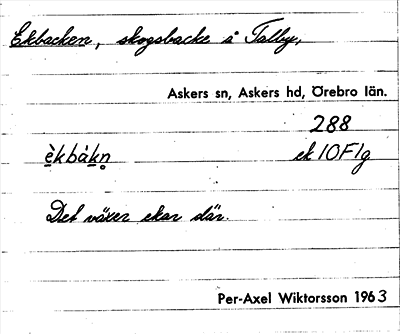 Ekbacken, skogsbacke å Talby,
Askers sn, Askers hd, Örebro län.
288
èkbàkn̥ ek 10F1g
Det växer ekar där.
Per-Axel Wiktorsson 1963